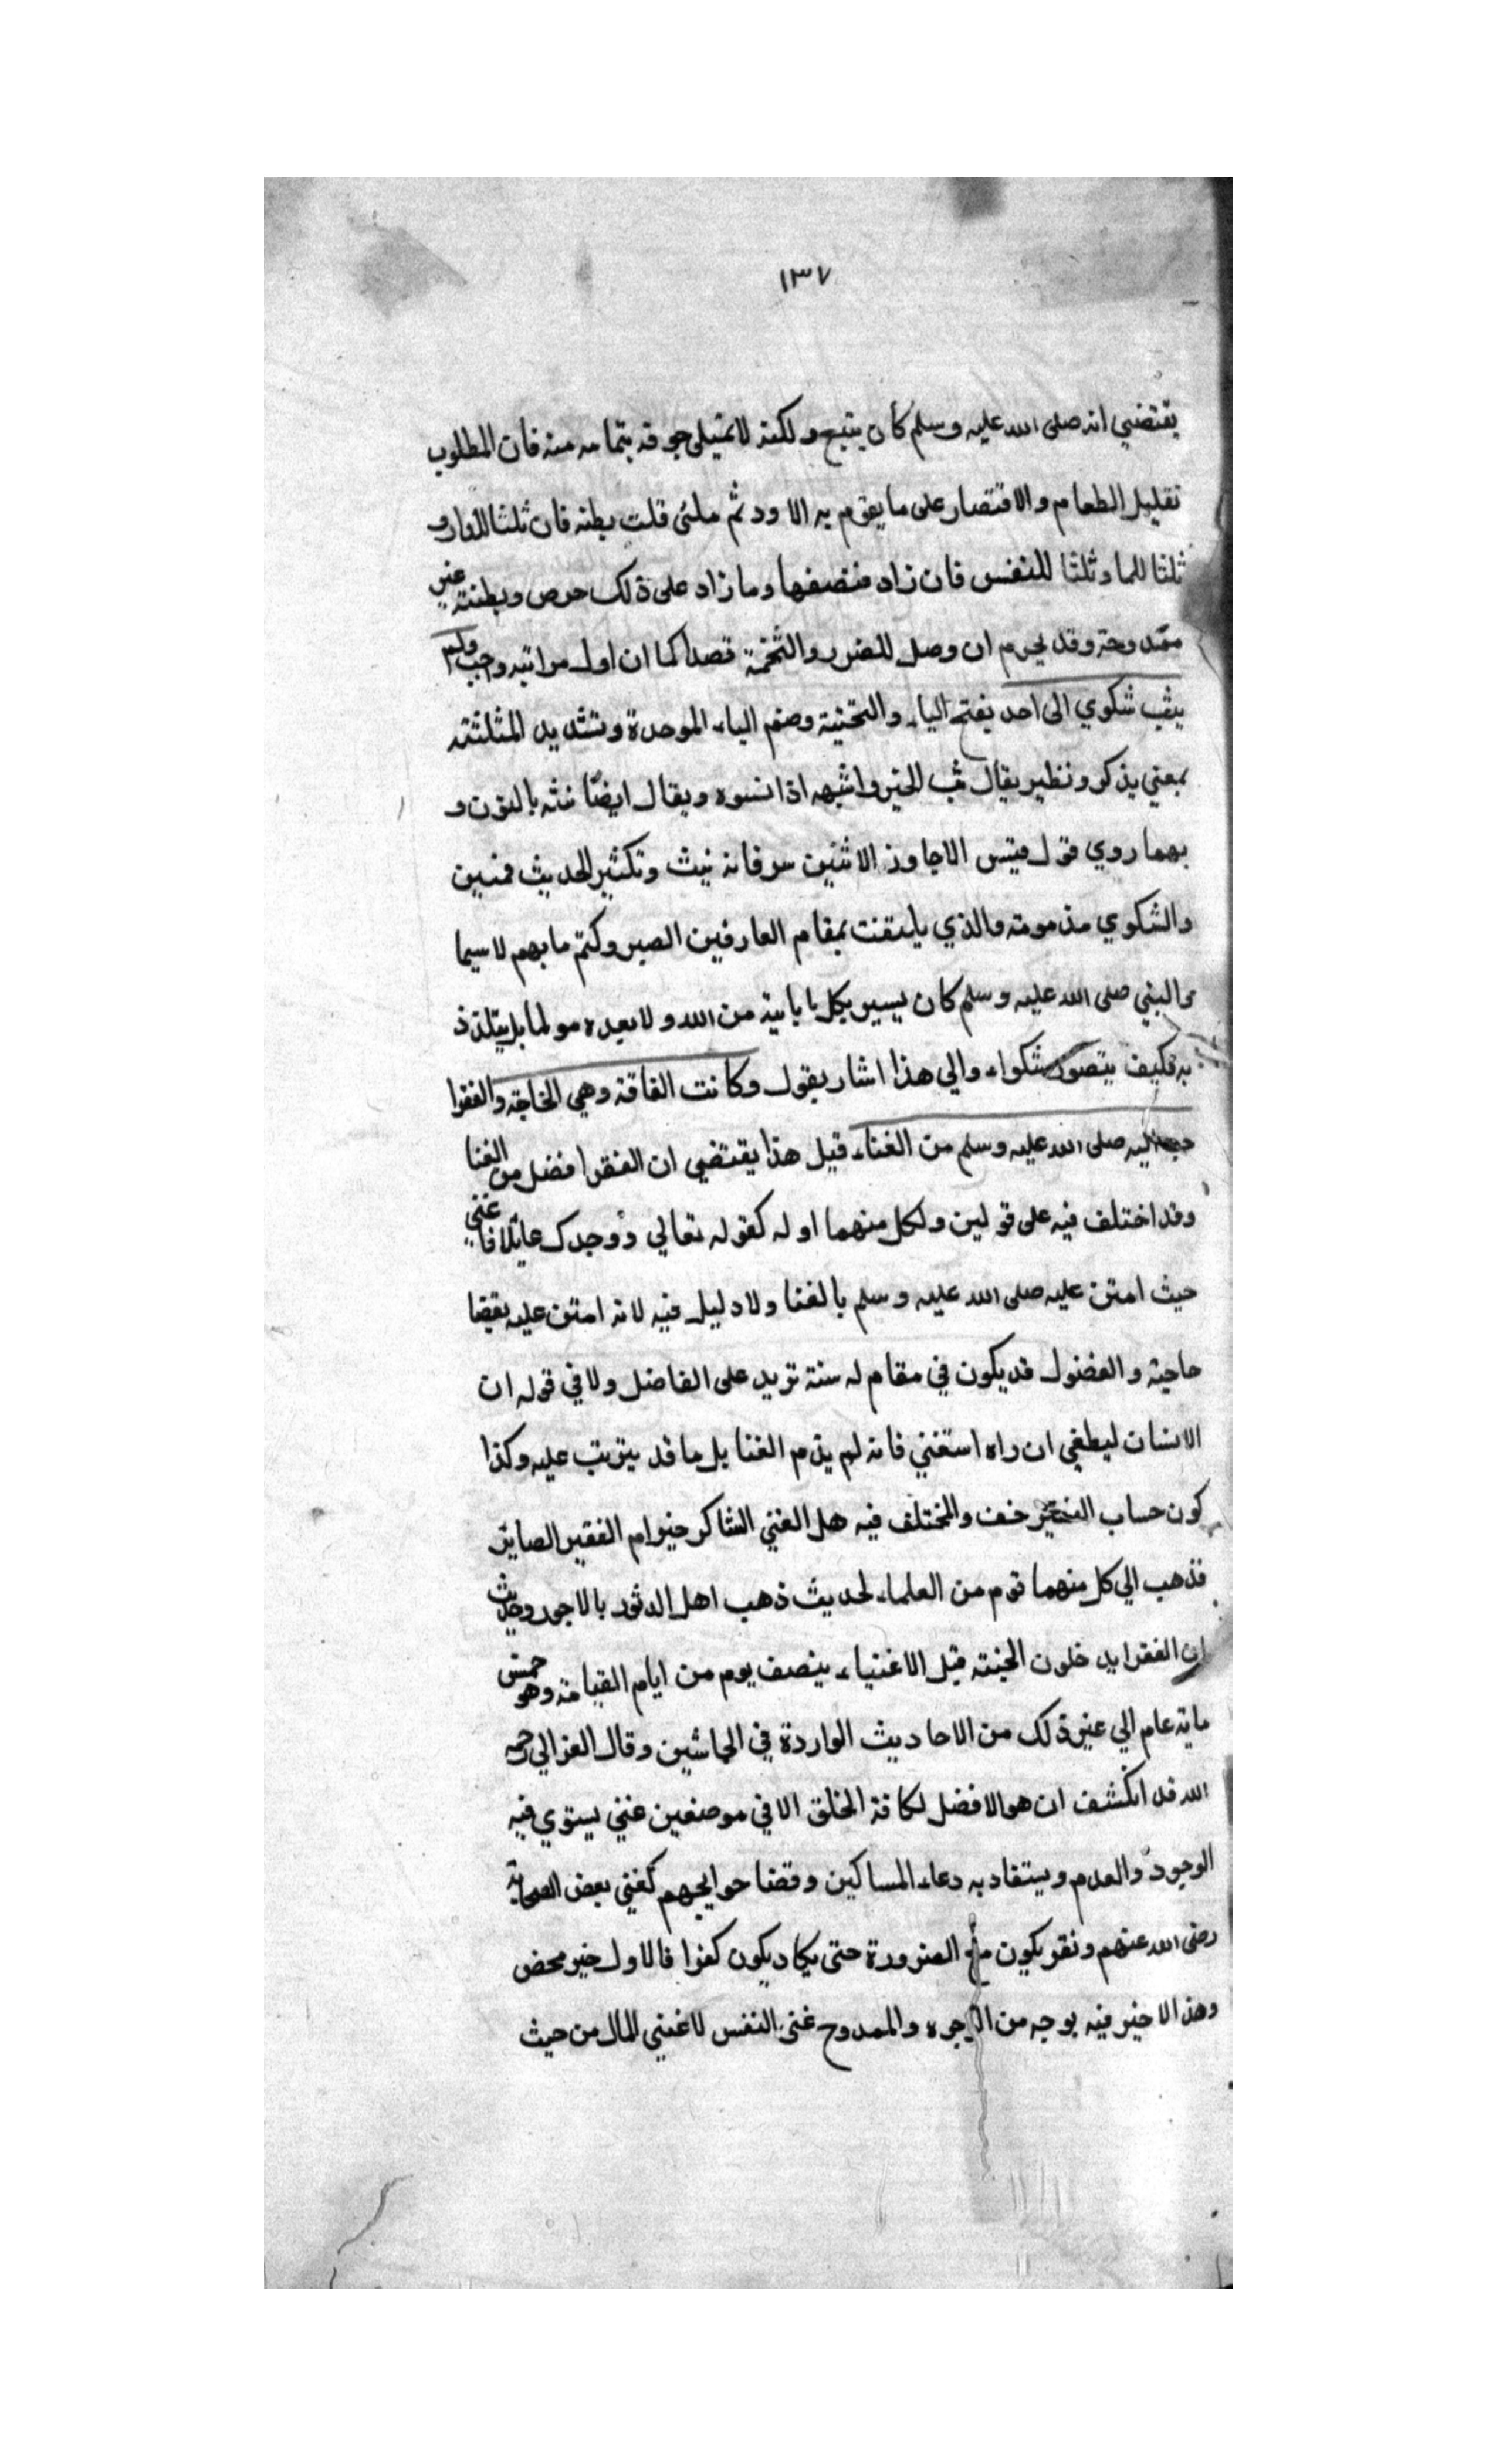 ١٣٧
يقتضي انه صلى الله عليه وسلم كان يشبع ولكنه لا تمتيلى جوفه بتمامه منه فان المطلوب
تقليل الطعام والاقتصار على ما يقوم به الاود ثم ملئ قلت بطنه فان ثلثا للزاد و
ثلثا للما وثلثا للنفس فان زاد فنصفها وما زاد على ذلك حرص وبطنته غير
ممدوحة وقد يحرم ان وصل للضرر والتخمة قصدا كما ان اول مراتبه واجب ولم
يبث شكوي الى احد بفتح الياء والتحتية وضم الباء الموحدة وتشديد المثلثة
بمعني يذكر ونظير يقال بث الخير واشبهه اذا نسوه ويقال ايضا نثه بالنون و
بهما روي قول قيس الا جاوز الاثنين سر فانه نيث وتكثير الحديث قمين
والشكوي مذمومة والذي يلتفت بمقام العارفين الصبر وكتم ما بهم لا سيما
والبني صلى الله عليه وسلم كان يسير بكل ما ياتيه من الله ولا يعده مولما بل يتلذذ
به فكيف يتصور شكواء والي هذا اشار بقول وكانت الفاقة وهي الحاجة والفقرا
حب اليه صلى الله عليه وسلم من الغناء قيل هذا يقتضي ان الفقر افضل من الغنا
وقد اختلف فيه على قولين ولكل منهما اوله كقوله تعالي ووجدك عايلا فاغني
حيث امتن عليه صلى الله عليه وسلم بالغنا ولا دليل فيه لانه امتن عليه بقضا
حاجته والفضول قد يكون في مقام له سنة تزيد على الفاضل ولا في قوله ان
الانسان ليطغي ان راه استغني فانه لم يذم الغنا بل ما قد يترتب عليه وكذا
كون حساب الفقير خف والمختلف فيه هل الغني الشاكر خير ام الفقير الصابر
فذهب الي كل منهما قوم من العلماء لحديث ذهب اهل الدثور بالاجور وحديث
ان الفقرا يدخلون الجنة قبل الاغنياء بنصف يوم من ايام القيامة وهو خمس
ماية عام الي غير ذلك من الاحاديث الواردة في الجانبين وقال الغزالي رحمه
الله قد انكشف ان هو الافضل لكافة الخلق الا في موضعين غني يستوي فيه
الوجود والعدم ويستفاد به دعاء المساكين وقضا حوايجهم كغني بعض الصحابة
رضى الله عنهم وفقر يكون مع الضرورة حتى يكاد يكون كفرا فالاول خير محض
وهذا لا خير فيه بوجه من الوجوه والممدوح غنى النفس لا غني المال من حيث